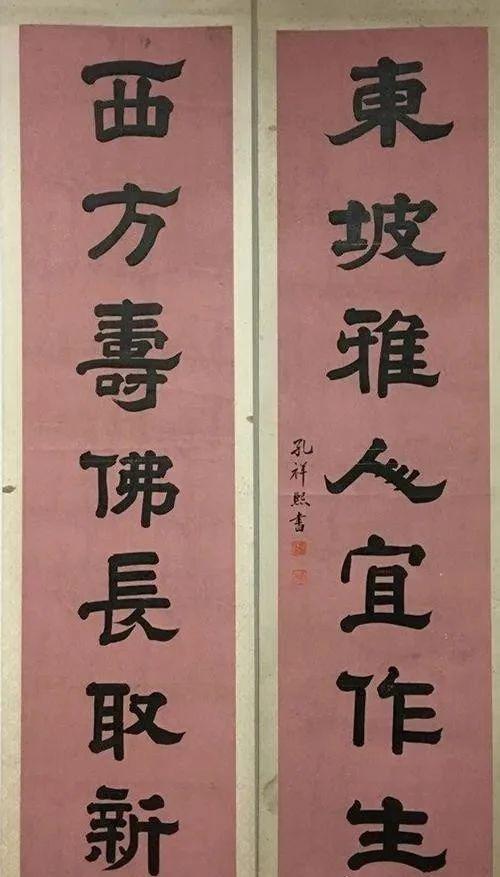 東坡雅人宜作生
孔祥熙書
西方壽佛長取新